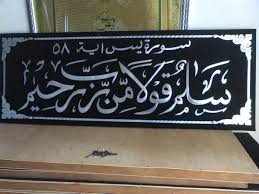 سورة يس اية ٥٨
سلم قولا من رب رحيم